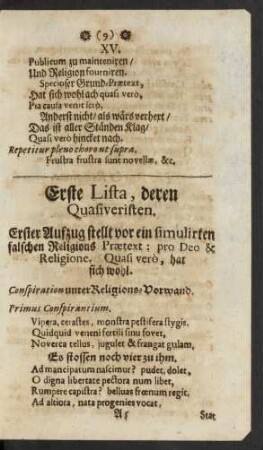 (9)
XV.
Publicum zu mainteniren /
Und Religion fourniren.
Specioser Grund-Prætext,
Hat sich wohl ach quasi verò,
Pia causa venit icrò,
Anderst nicht / als wårs verhext /
Das ist aller Ständen Klag /
Quasi verò hincket nach.
Repetitur pleno choro ut suprà.
Frustra frustra sunt novellæ, &c.
Erste Lista, deren
Quasiveristen.
Erster Aufzug stellt vor ein simulirten
falschen Religions Prætext: pro Deo &
Religione. Quasi verò, hat
sich wohl.
Conspiration unter Religions-Vorwand.
Primus Conspirantium.
Vipera, cerastes, monstra pestifera stygis,
Quidquid veneni fertili sinu fovet,
Noverca tellus, jugulet & frangat gulam,
Es stossen noch vier zu ihm.
Ad mancipatum nascimur? pudet, dolet,
O digna libertate pectora num libet,
Rumpere capistra? belluas frœnum regit,
Ad altiora, nata progenies vocat,
A5 Stat